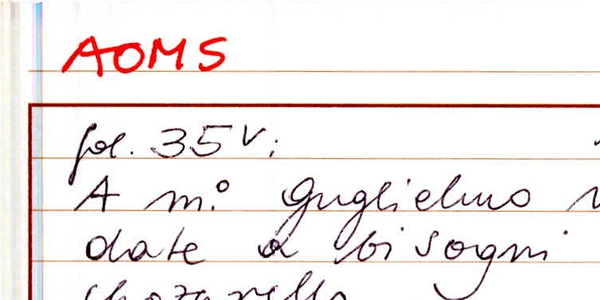 AOMS
fol. 35v;
A m.º Guglielmo
date a bisogni